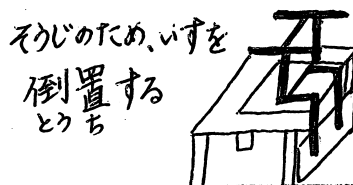 そうじのため、いすを
倒置する
とうち